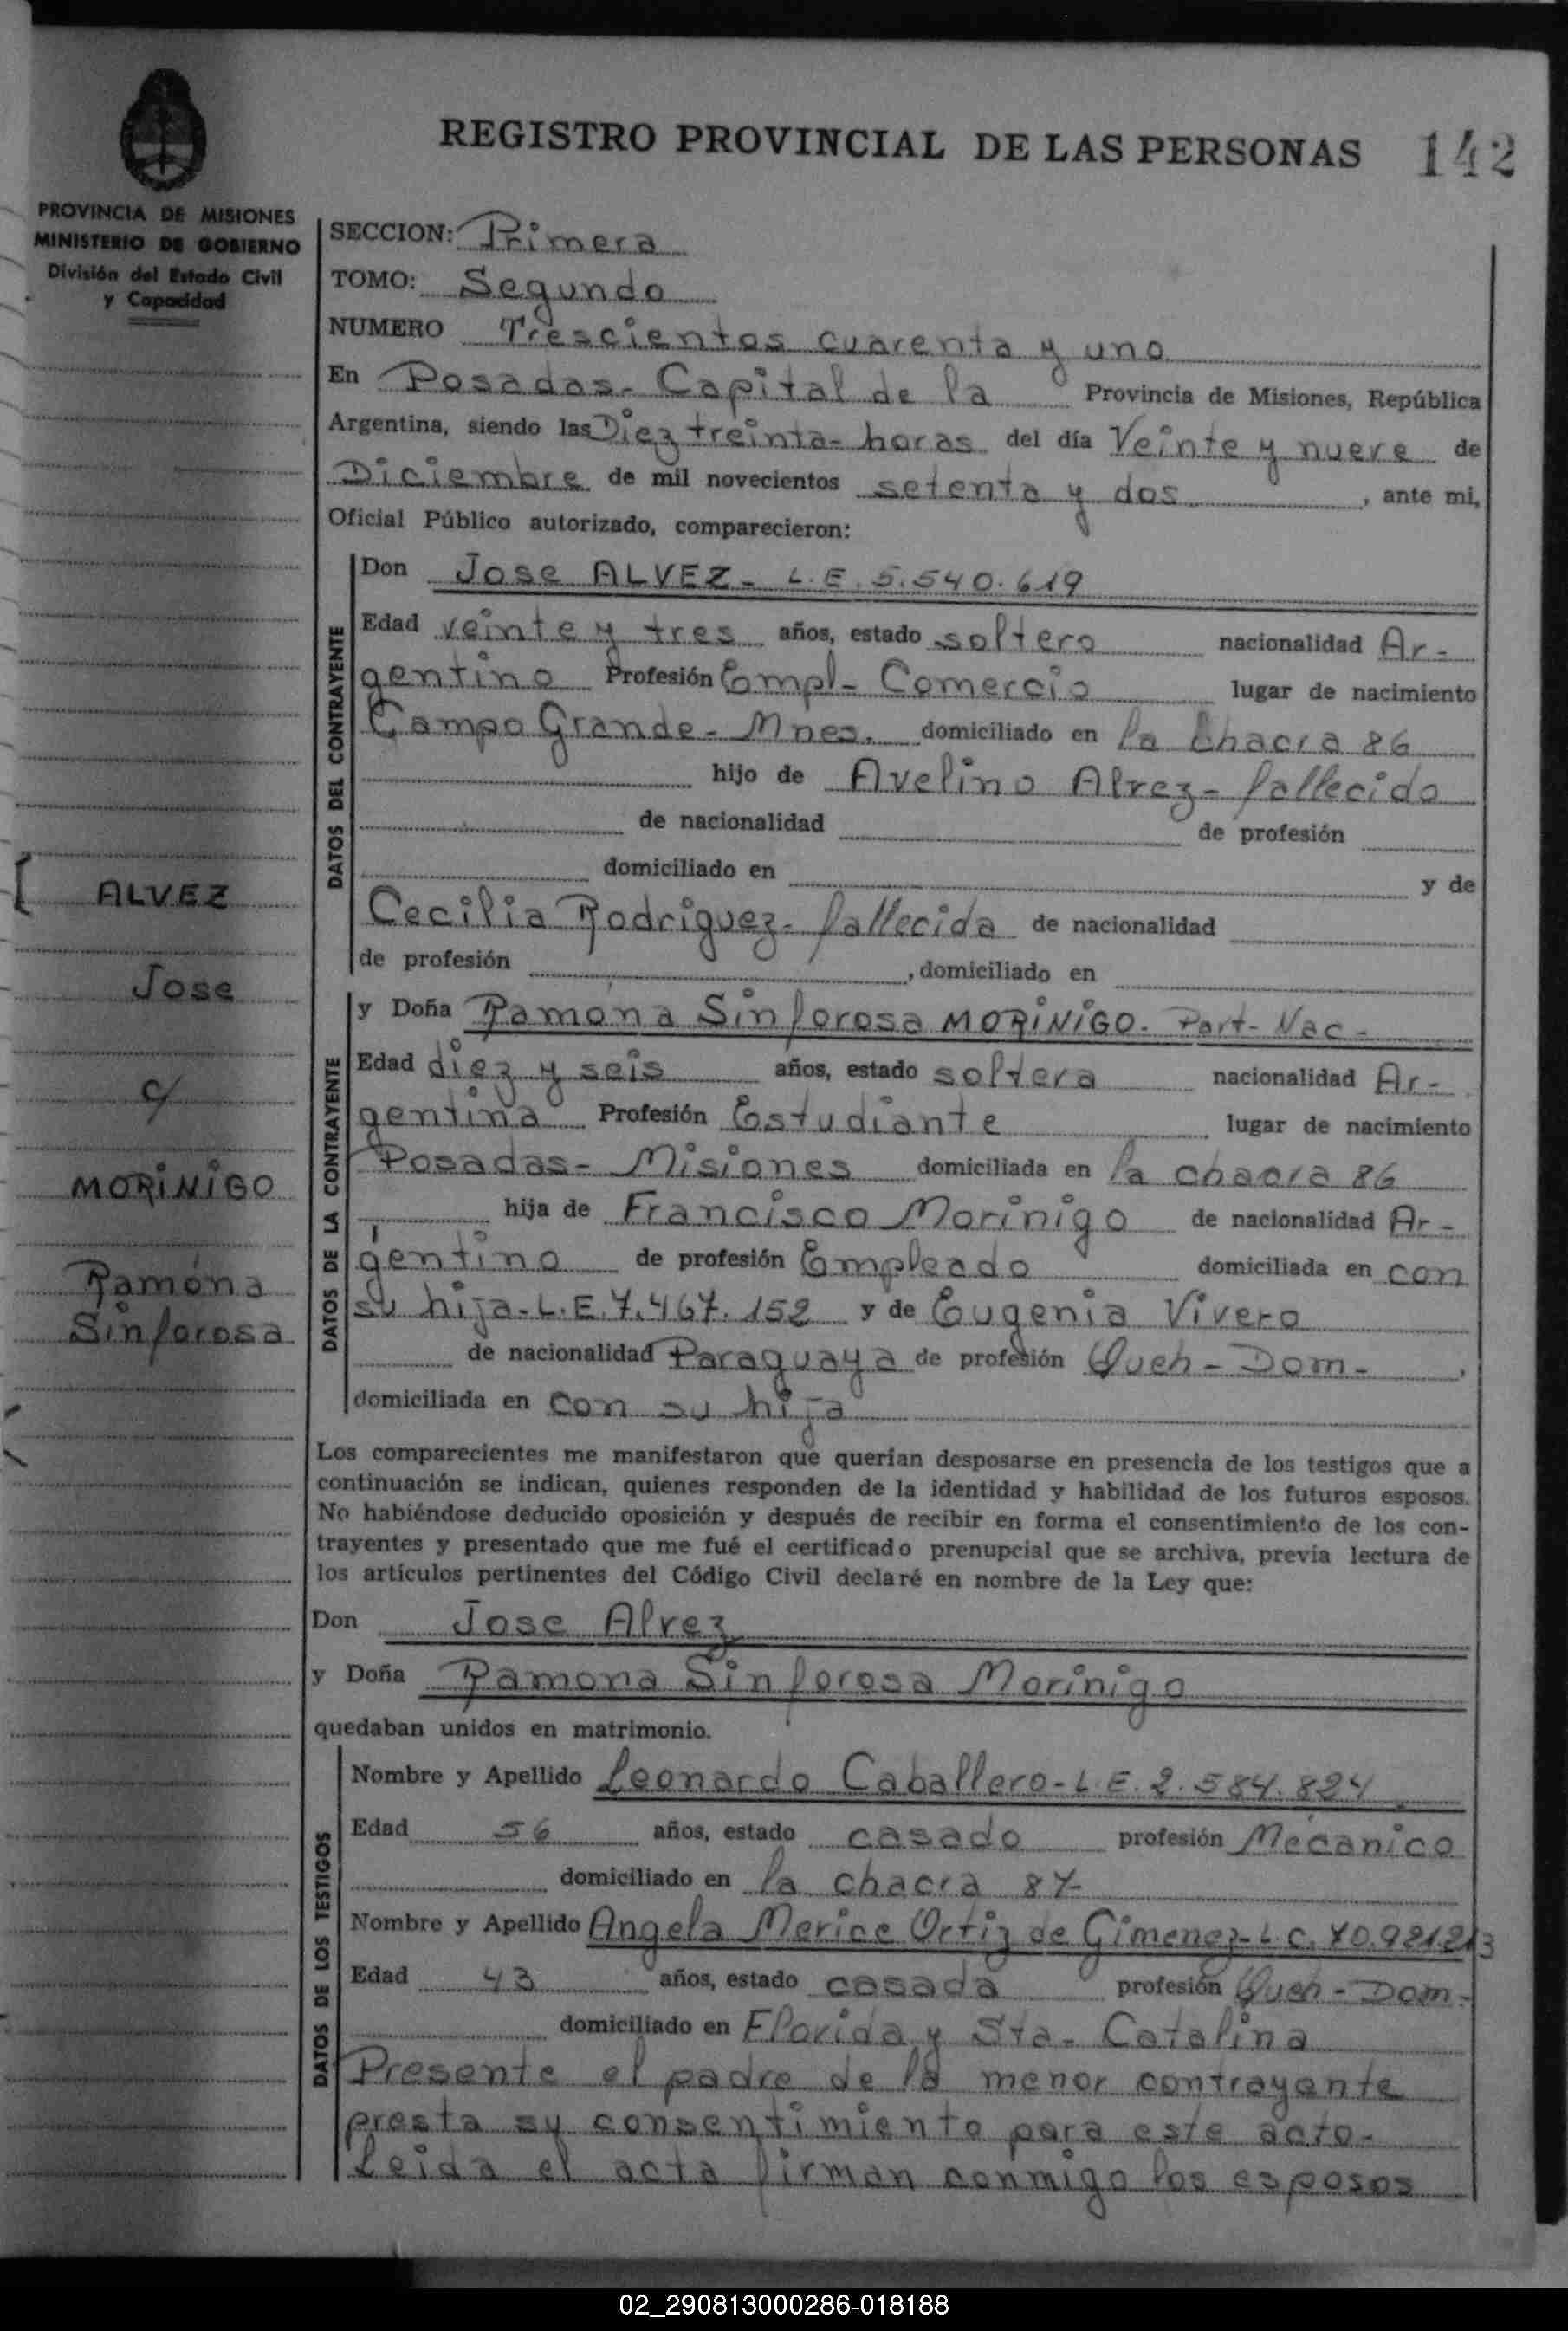 REGISTRO PROVINCIAL DE LAS PERSONAS 142
PROVINCIA DE MISIONES
MINISTERIO DE GOBIERNO
División del Estado Civil
y Capacidad
ALVEZ
Jose
c/
MORINIGO
Ramona
Sinforosa
SECCION: Primera
TOMO: Segundo
NUMERO Trescientos cuarenta y uno
En Posadas - Capital de la Provincia de Misiones, República
Argentina, siendo las Diez treinta - horas del día Veinte y nueve de
Diciembre de mil novecientos setenta y dos, ante mi,
Oficial Público autorizado, comparecieron:
DATOS DEL CONTRAYENTE
Don Jose ALVEZ - L.E. 5.540.619
Edad veinte y tres años, estado soltero nacionalidad Ar-
gentino Profesión Empl - Comercio lugar de nacimiento
Campo Grande - Mnes. domiciliado en la chacra 86
hijo de Avelino Alvez - fallecido
de nacionalidad de profesión
domiciliado en y de
Cecilia Rodriguez - fallecida de nacionalidad
de profesión , domiciliado en
DATOS DE LA CONTRAYENTE
y Doña Ramona Sinforosa MORINIGO - Part - Nac -
Edad diez y seis años, estado soltera nacionalidad Ar-
gentina Profesión Estudiante lugar de nacimiento
Posadas - Misiones domiciliada en la chacra 86
hija de Francisco Morinigo de nacionalidad Ar-
gentino de profesión Empleado domiciliada en con
su hija - L.E. 7.467.152 y de Eugenia Vivero
de nacionalidad Paraguaya de profesión Queh - Dom -,
domiciliada en con su hija
Los comparecientes me manifestaron que querían desposarse en presencia de los testigos que a
continuación se indican, quienes responden de la identidad y habilidad de los futuros esposos.
No habiéndose deducido oposición y después de recibir en forma el consentimiento de los con-
trayentes y presentado que me fué el certificado prenupcial que se archiva, previa lectura de
los artículos pertinentes del Código Civil declaré en nombre de la Ley que:
Don Jose Alvez
y Doña Ramona Sinforosa Morinigo
quedaban unidos en matrimonio.
DATOS DE LOS TESTIGOS
Nombre y Apellido Leonardo Caballero - L.E. 2.584.824
Edad 56 años, estado casado profesión Mecanico
domiciliado en la chacra 87
Nombre y Apellido Angela Merice Ortiz de Gimenez - L.C. 70.921.213
Edad 43 años, estado casada profesión Queh - Dom -
domiciliado en Florida y Sta - Catalina
Presente el padre de la menor contrayente
presta su consentimiento para este acto -
Leida el acta firman conmigo los esposos
02_290813000286-018188